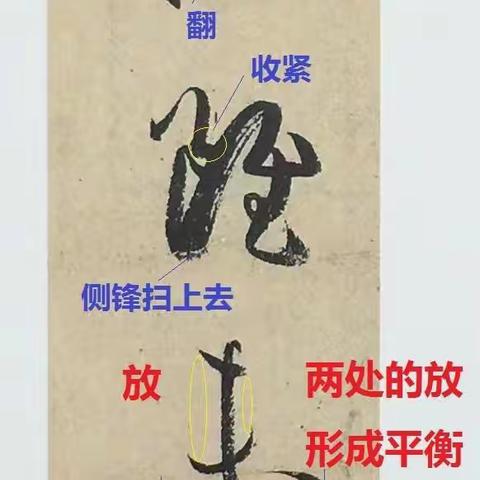 翻
收紧
侧锋扫上去
放
两处的放
形成平衡